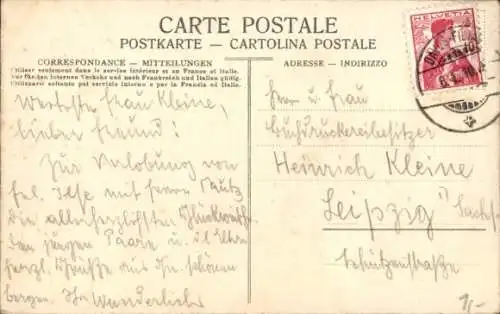 CARTE POSTALE
POSTKARTE — CARTOLINA POSTALE
CORRESPONDANCE — MITTEILUNGEN
Utiliser seulement dans le service intérieur et au France et Italie.
Nur für den internen Verkehr und nach Frankreich und Italien gültig.
Utilizzarsi soltanto pel servizio interno e par la Francia ed Italia.
Werteste Frau Kleine,
lieber Freund!
Zur Verlobung von
frl. Ilse mit Herrn
die allerherzlichsten Glückwünsche
den jungen Paare u. d. Eltern
herzl. Grüße aus schönen
bergen. Ihr Wunderlich
ADRESSE — INDIRIZZO
HELVETIA
Herrn u. Frau
Buchdruckereibesitzer
Heinrich Kleine
Leipzig
Sachs
Schützenstraße
1,-